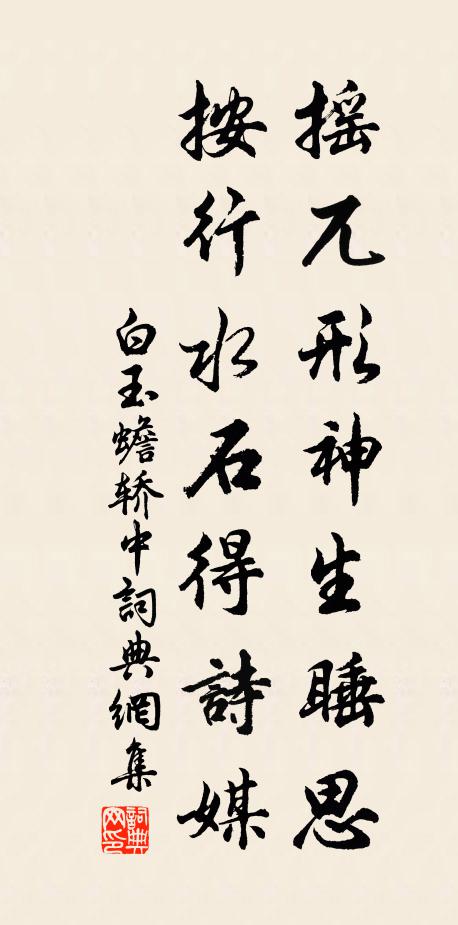 摇兀形神生睡思
按行水石得詩媒
白玉蟾轿中詞典網集
詞典网印